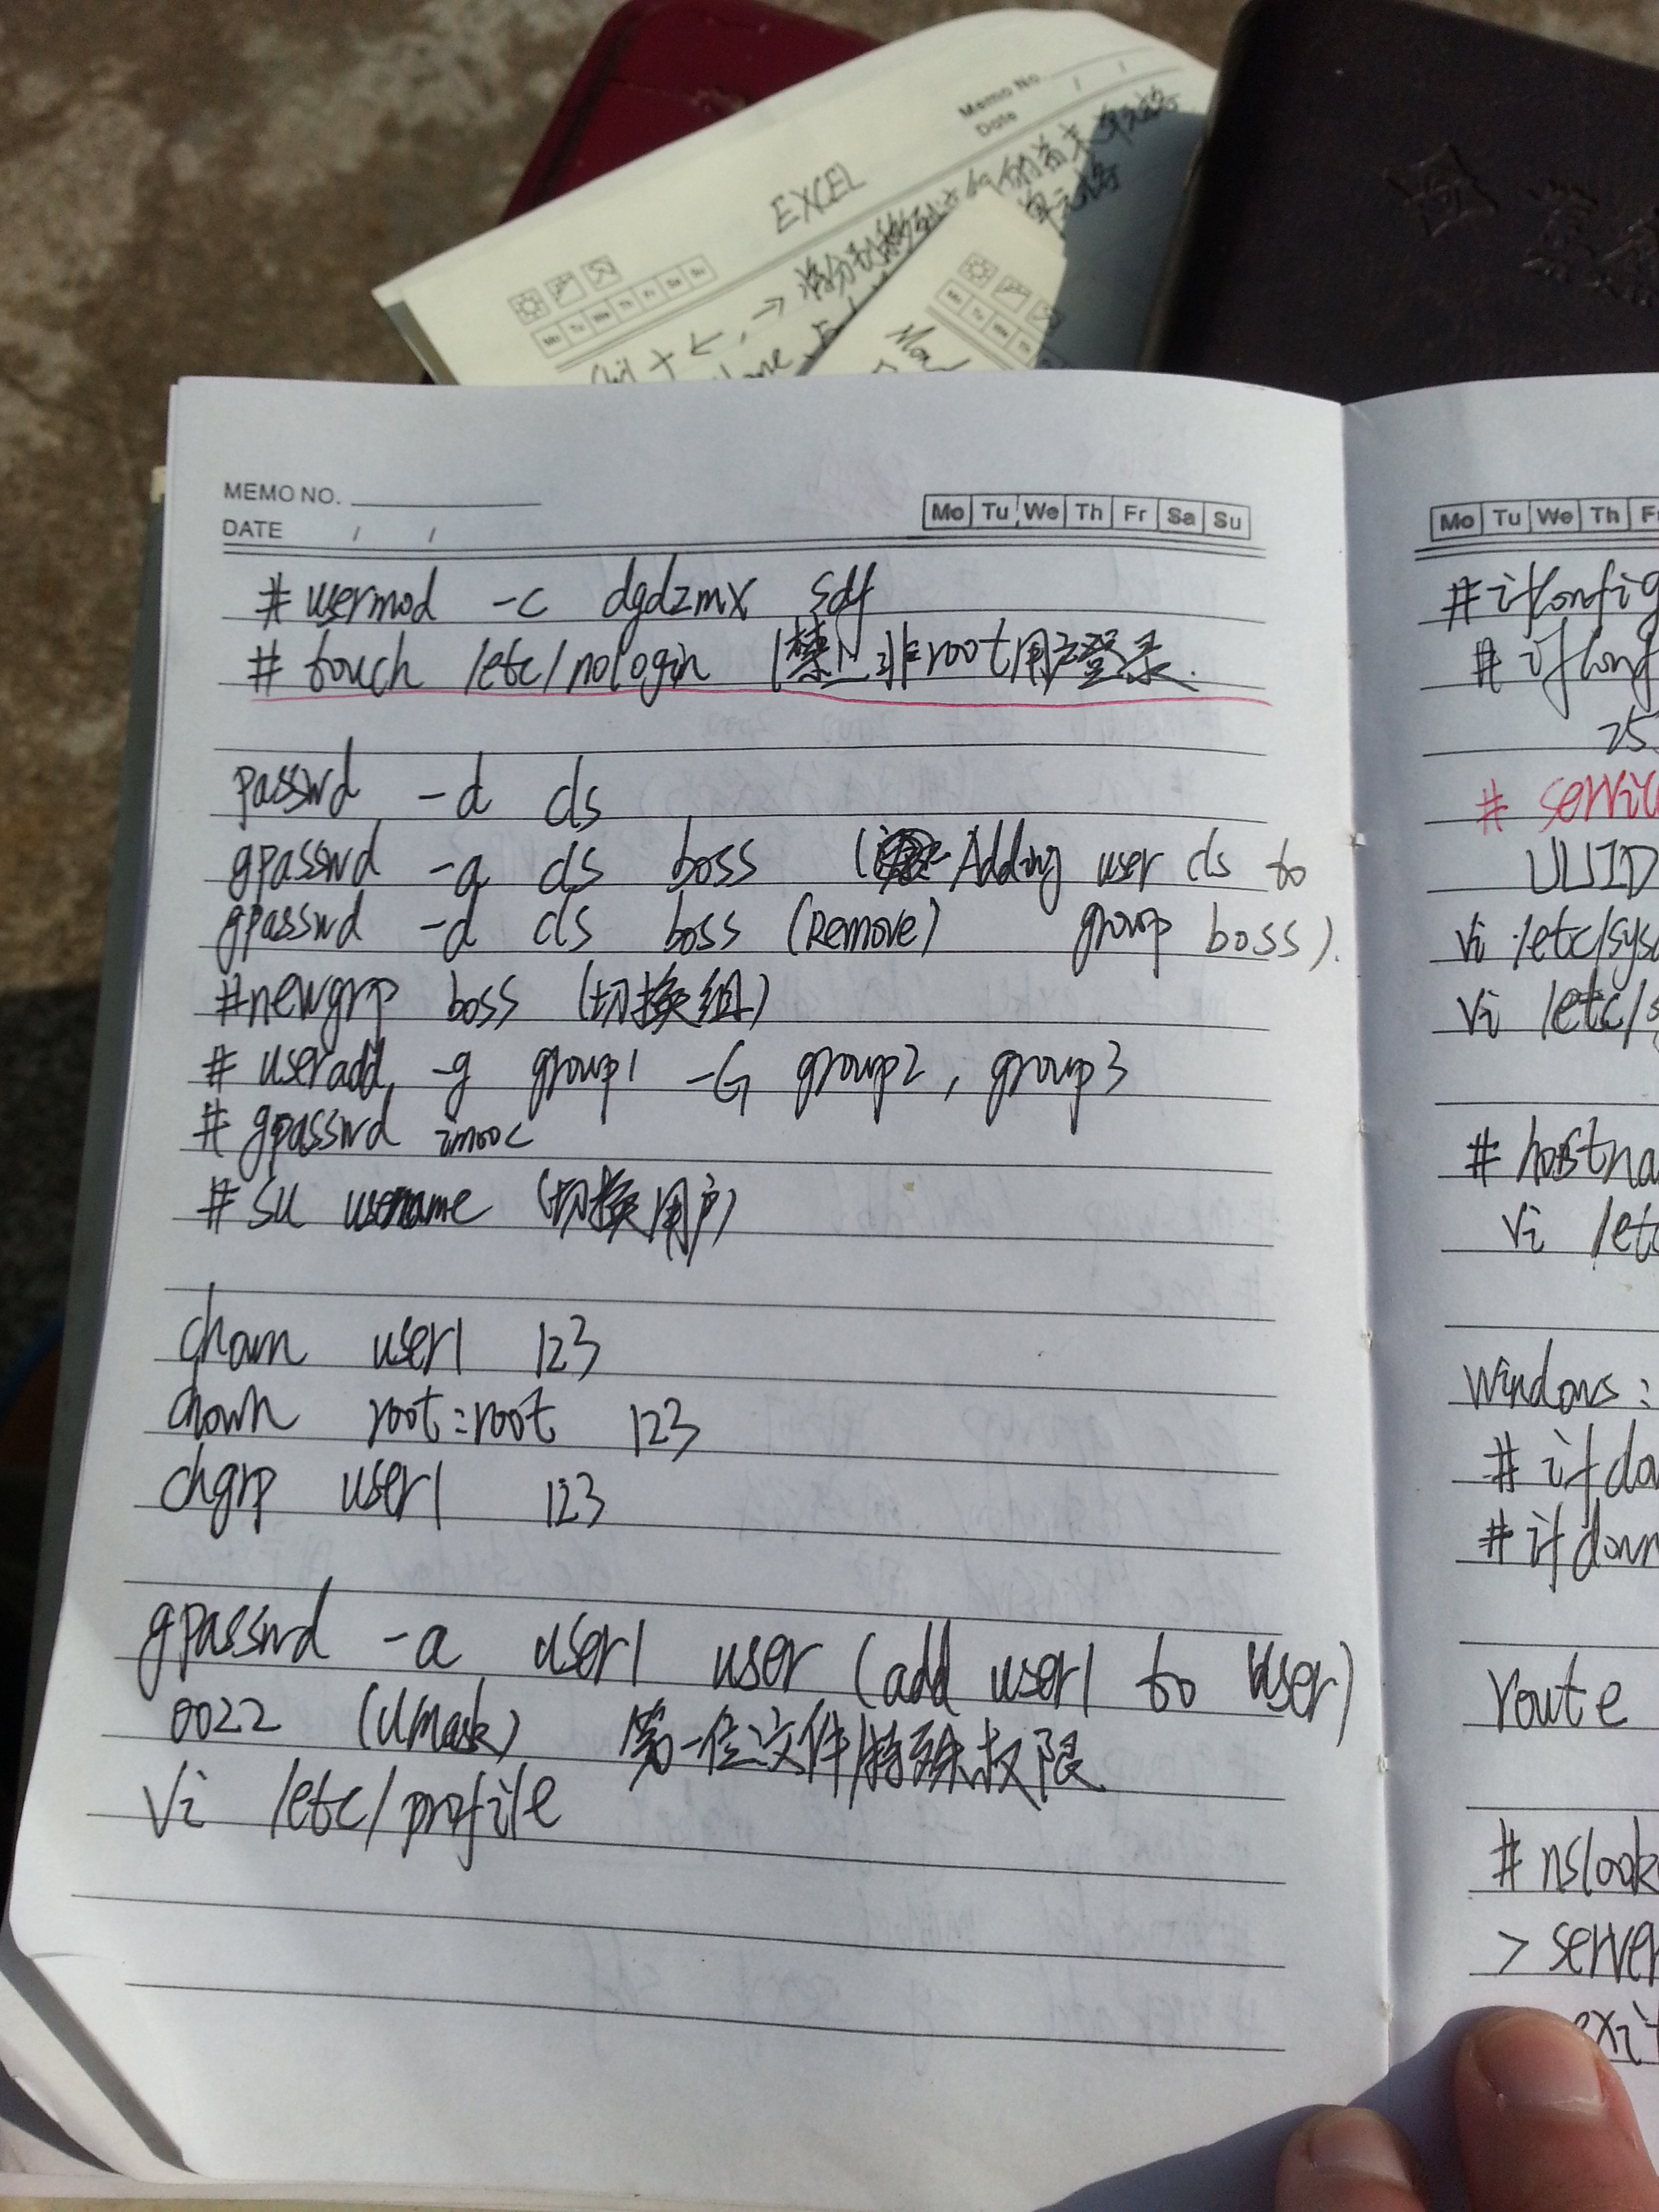 EXCEL
Memo No.
Date / /
Mo Tu We Th Fr Sa Su
MEMO NO.
DATE / /
Mo Tu We Th Fr Sa Su
# usermod -c dgdzmx sdf
# touch /etc/nologin (禁止非root用户登录.
passwd -d cls
gpasswd -a cls boss (Adding user cls to
gpasswd -d cls boss (Remove) group boss).
#newgrp boss (切换组)
# useradd -g group1 -G group2, group3
# gpasswd imooc
# su username (切换用户)
chown user1 123
chown root:root 123
chgrp user1 123
gpasswd -a user1 user (add user1 to user)
0022 (umask) 第一位文件特殊权限
vi /etc/profile
Mo Tu We Th F
#ifconfig
# ifconf
25
# servic
UUID
vi /etc/sysc
vi /etc/s
# hostna
vi /etc
windows:
# ifdo
# ifdown
route
# nslook
> server
exit